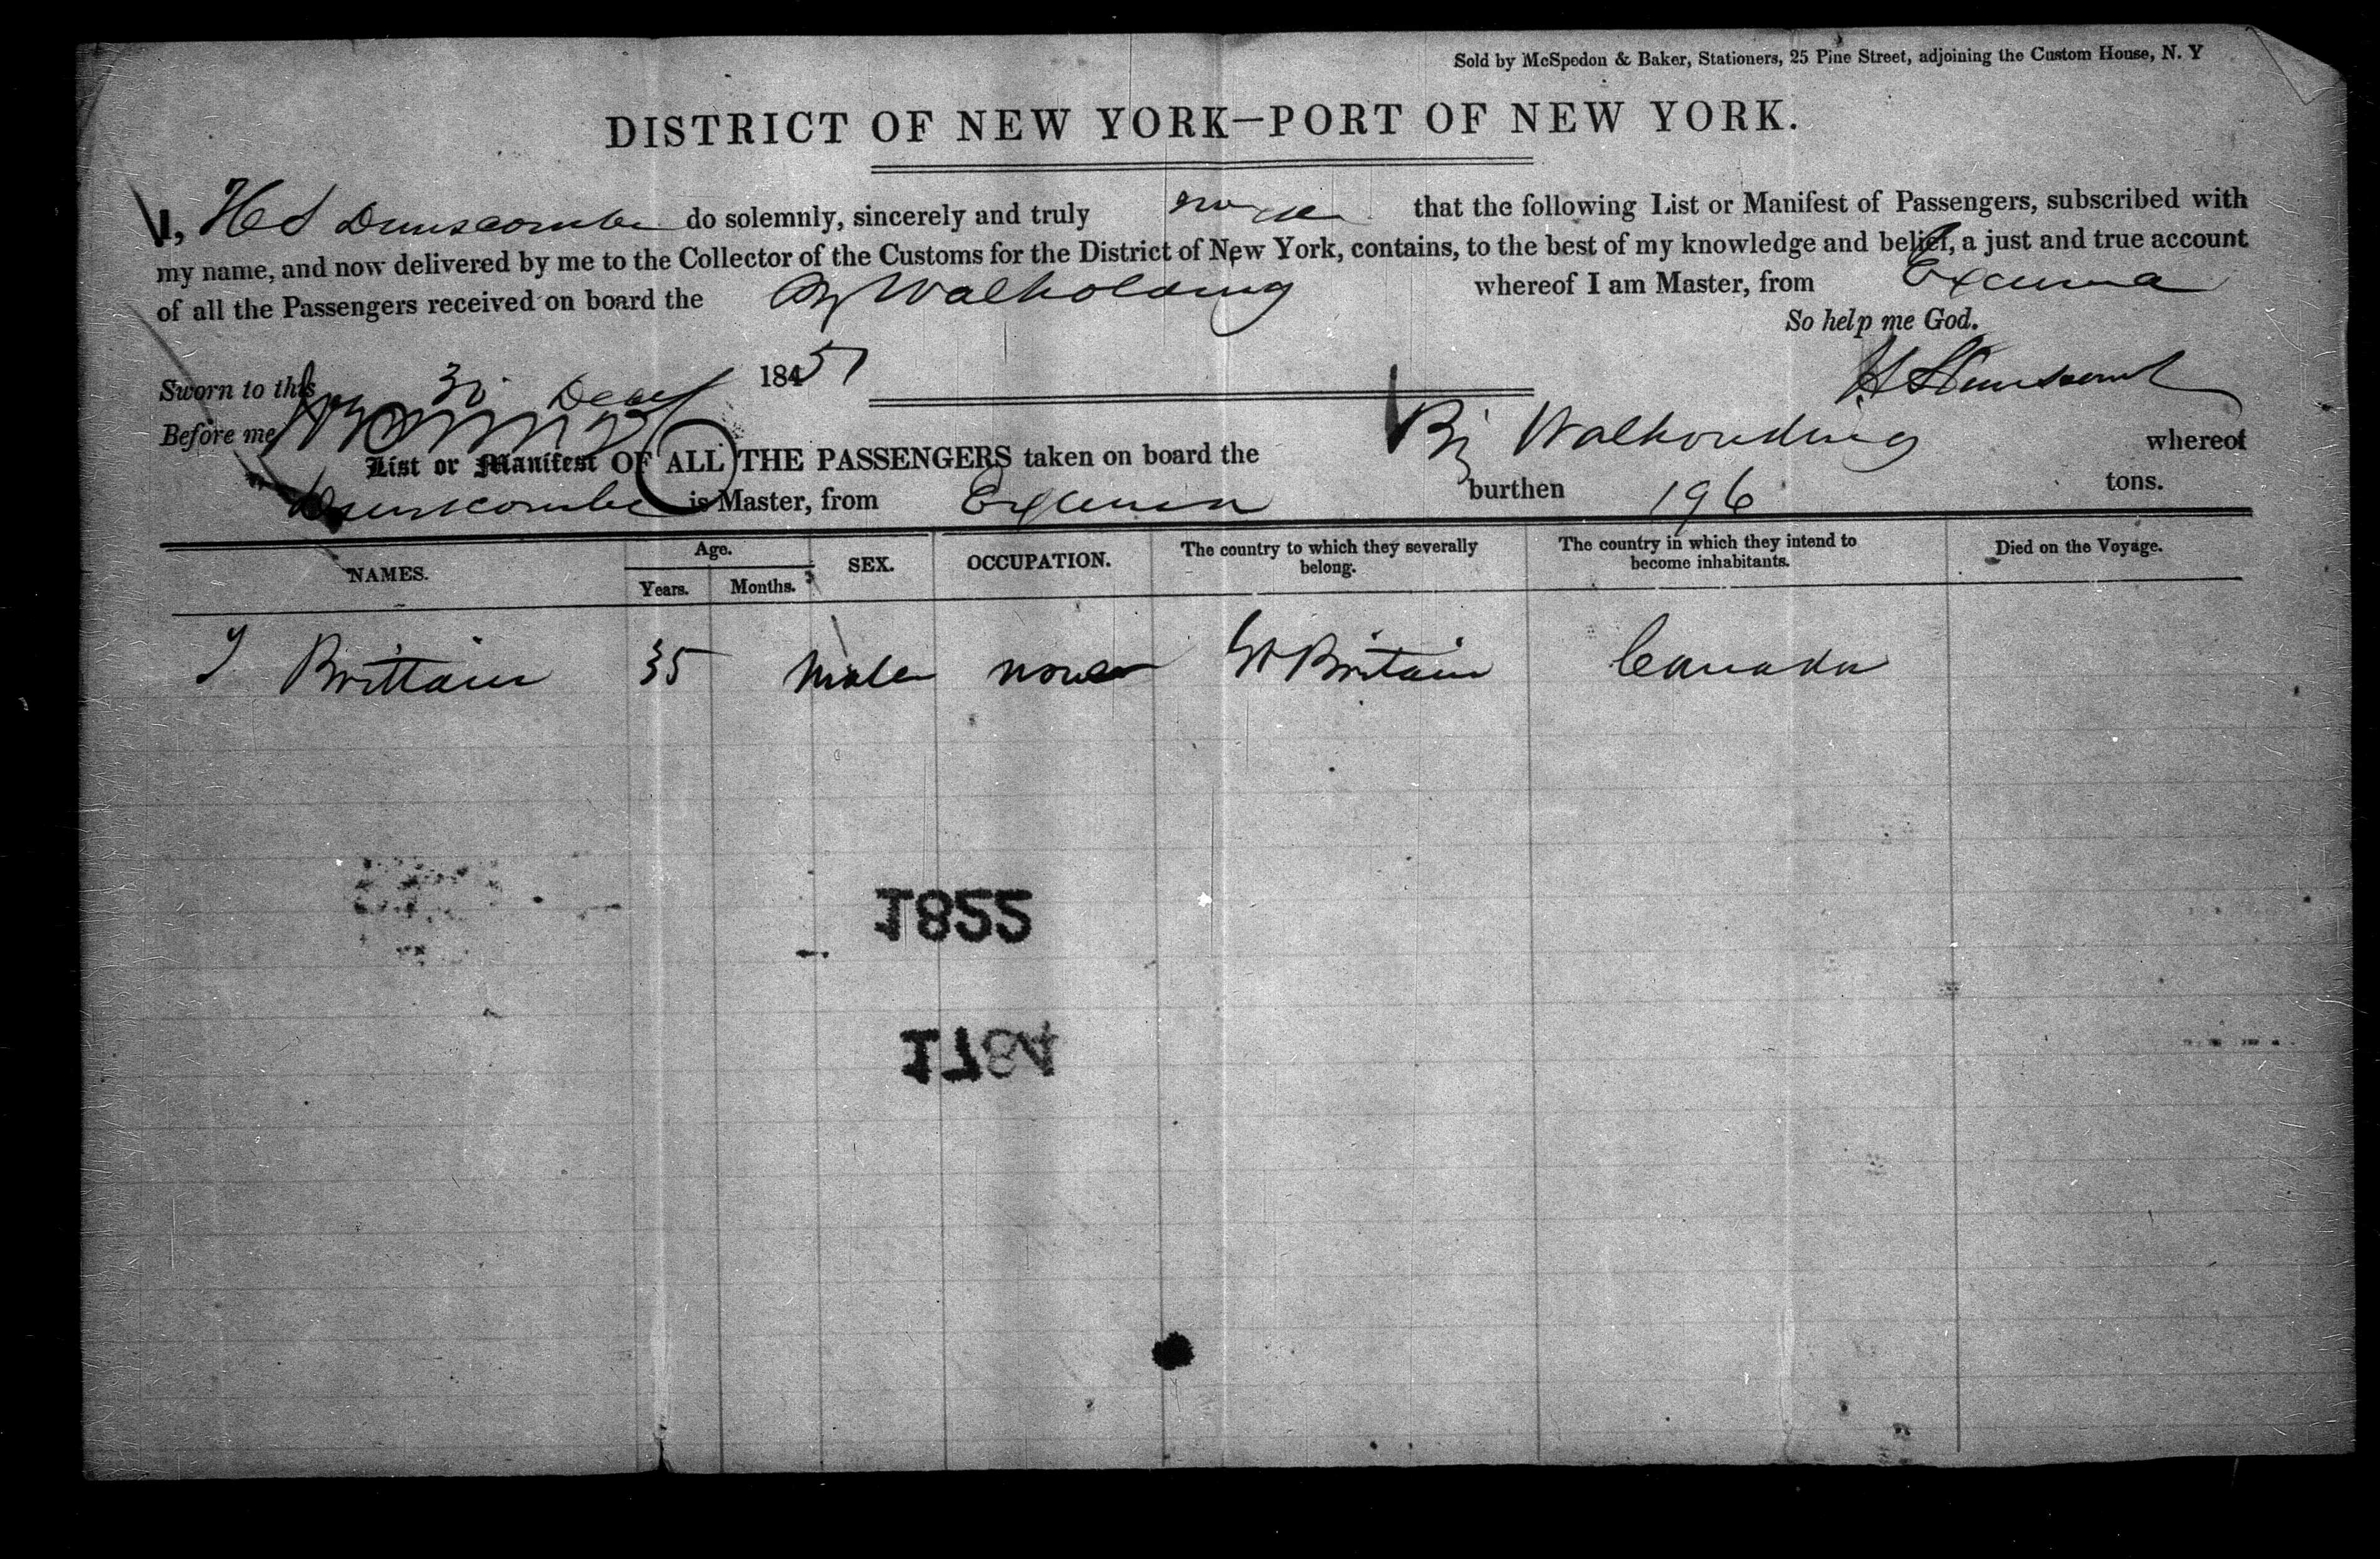 Sold by McSpedon & Baker, Stationers, 25 Pine Street, adjoining the Custom House, N. Y
DISTRICT OF NEW YORK—PORT OF NEW YORK.
I, H S Dunscombe do solemnly, sincerely and truly swear that the following List or Manifest of Passengers, subscribed with
my name, and now delivered by me to the Collector of the Customs for the District of New York, contains, to the best of my knowledge and belief, a just and true account
of all the Passengers received on board the Walholding whereof I am Master, from Exuma
So help me God.
Sworn to this 31 Decr 1851
H S Dunscomb
Before me
List or Manifest OF ALL THE PASSENGERS taken on board the Bg Walhonding whereof
Dunscombe is Master, from Exuma burthen 196 tons.
NAMES. Age. Years. Months. SEX. OCCUPATION. The country to which they severally belong. The country in which they intend to become inhabitants. Died on the Voyage.
J Brittain 35 Male none Gt Britain Canada
1855
1784